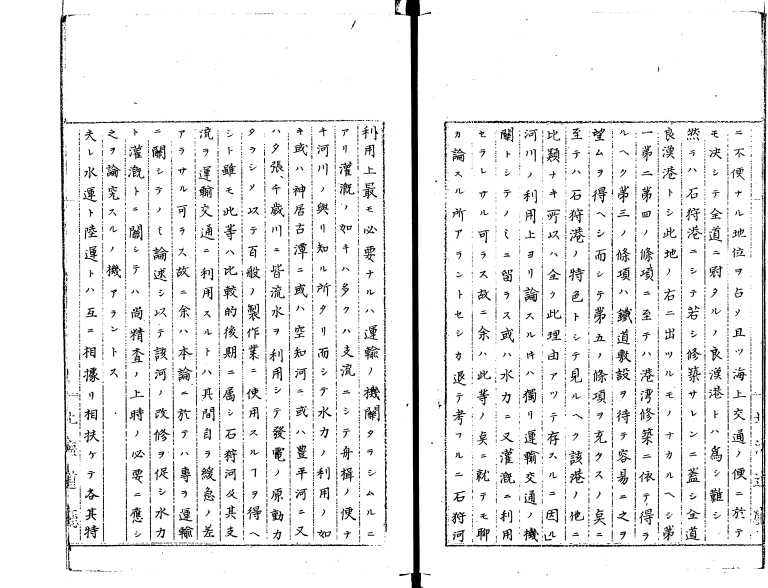 ニ不便ナル地位ヲ占ゾ且ツ海上交通ノ便ニ於テ
モ決シテ全道ニ冠タルノ良漢港トハ為シ難シ
然ラハ石狩港ニシテ若シ修築サレンニ蓋シ全道
良漢港トシ此地ノ右ニ出ツルモノナカルヘシ第
一第二第四ノ條項ニ至テハ港湾修築ニ依テ得ラ
ルヘク第三ノ條項ハ鐵道敷設ヲ待テ容易ニ之ヲ
望ムヲ得ヘシ而シテ第五ノ條項ヲ充タスノ矣ニ
至テハ石狩港ノ特色トシテ見ルヘク該港ノ他ニ
比類ナキ所以ハ全ク此理由アツテ存スルニ因ル
河川ノ利用上ヨリ論スル片ハ獨リ運輸交通ノ機
關トシテノミニ留ラス或ハ水力ニ又灌漑ニ利用
セラレサル可ラス故ニ余ハ此等ノ矣ニ就テモ聊
カ論スル所アラントセシカ退テ考フルニ石狩河
利用上最モ必要ナルハ運輸ノ機關タラシムルニ
アリ灌漑ノ如キハ多クハ支流ニシテ舟楫ノ便ナ
キ河川ノ與リ知ル所タリ而シテ水力ノ利用ノ如
キ或ハ神居古潭ニ或ハ空知河ニ或ハ豊平河ニ又
ハタ張、千歳川ニ皆流水ヲ利用シテ發電ノ原動力
タラシメ以テ百般ノ製作業ニ使用スルヿヲ得ヘ
シト雖モ此等ハ比較的後期ニ属シ石狩河及其支
流ヲ運輸交通ニ利用スルトハ其間自ラ緩急ノ差
アラサル可ラス故ニ余ハ本論ニ於テハ專ヲ運輸
ニ關シテノミ論述シ以テ該河ノ改修ヲ促シ水力
ト灌漑トニ關シテハ尚精査ノ上時ノ必要ニ應シ
之ヲ論究スルノ機アラントス
夫レ水運ト陸運トハ互ニ相據リ相扶ケテ各其特